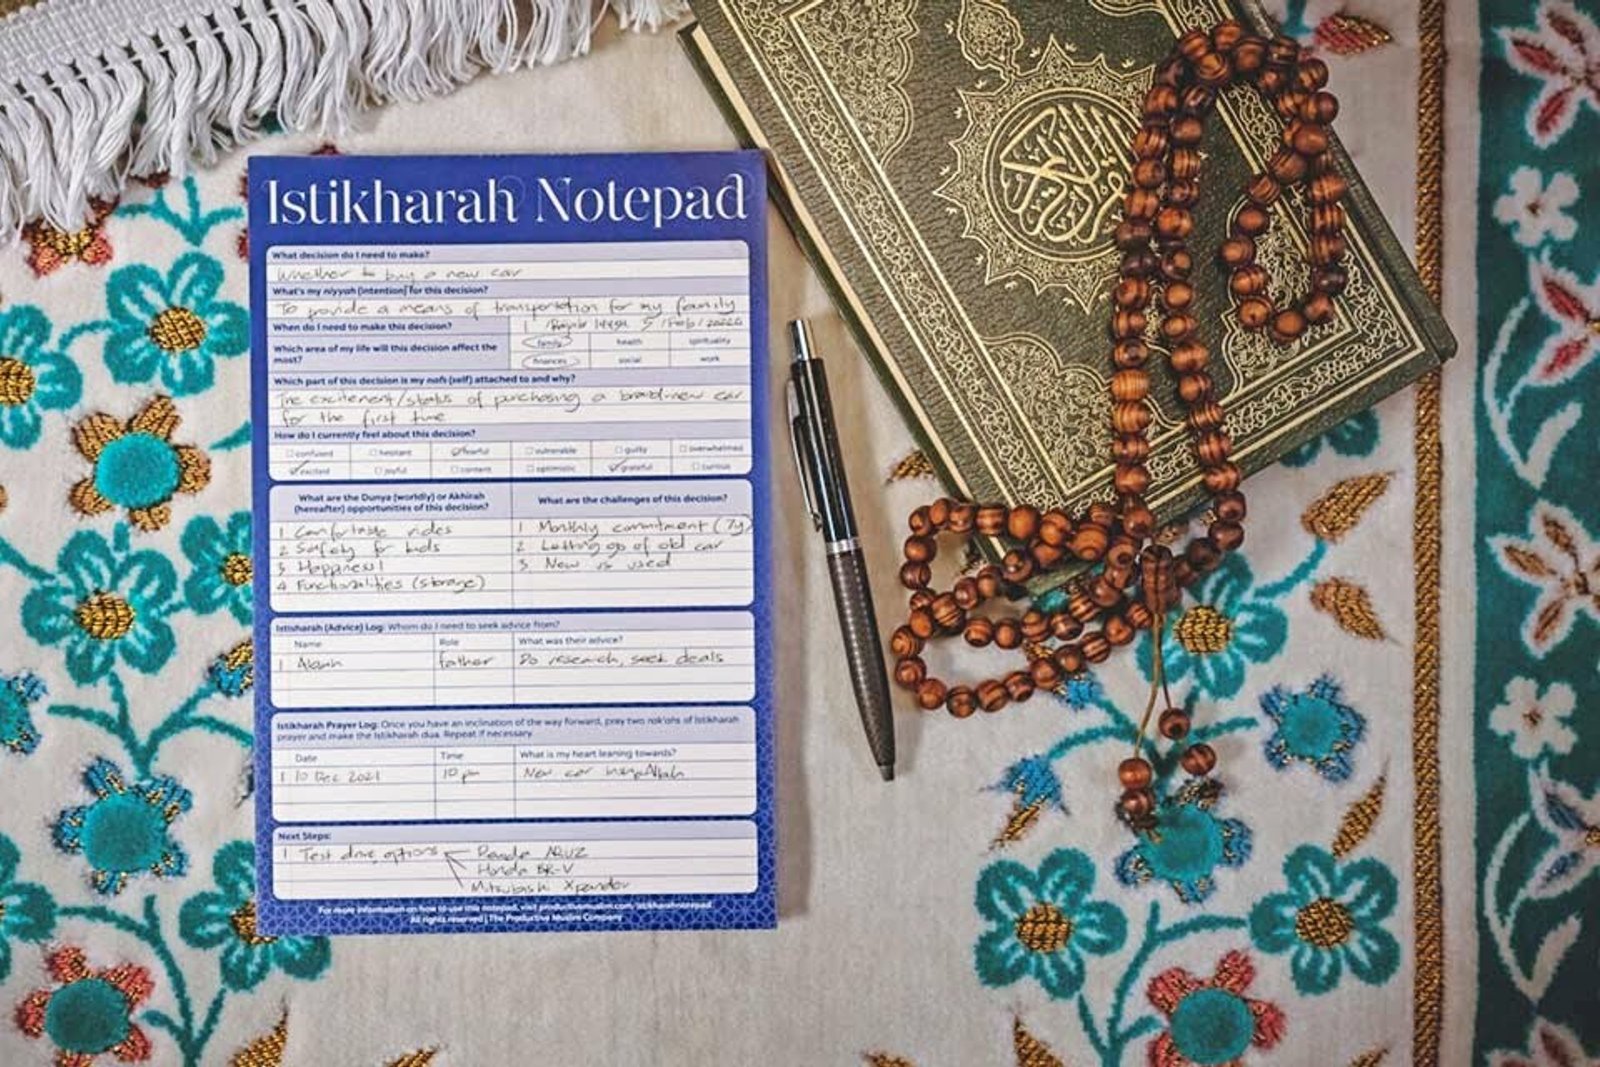 Istikharah Notepad
What decision do I need to make?
Whether to buy a new car
What's my niyyah (intention) for this decision?
To provide a means of transportation for my family
When do I need to make this decision?
1 Rajab 5/Feb/
Which area of my life will this decision affect the most?
family health spirituality
finances social work
Which part of this decision is my nafs (self) attached to and why?
The excitement/status of purchasing a brand-new car
for the first time
How do I currently feel about this decision?
confused hesitant fearful vulnerable guilty overwhelmed
excited joyful content optimistic grateful curious
What are the Dunya (worldly) or Akhirah
(hereafter) opportunities of this decision?
1 Comfortable rides
2 Safety for kids
3 Happiness!
4 Functionalities (storage)
What are the challenges of this decision?
1 Monthly commitment (7y)
2 Letting go of old car
3 New vs used
Istisharah (Advice) Log: Whom do I need to seek advice from?
Name Role What was their advice?
1 father Do research, seek deals
Istikharah Prayer Log: Once you have an inclination of the way forward, pray two rak'ahs of Istikharah
prayer and make the Istikharah dua. Repeat if necessary.
Date Time What is my heart leaning towards?
1 10 Dec 2021 10 pm New car
Next Steps:
1 Test drive options
Honda BR-V
Mitsubishi Xpander
For more information on how to use this notepad, visit productivemuslim.com/istikharahnotepad
All rights reserved | The Productive Muslim Company
القرآن الكريم